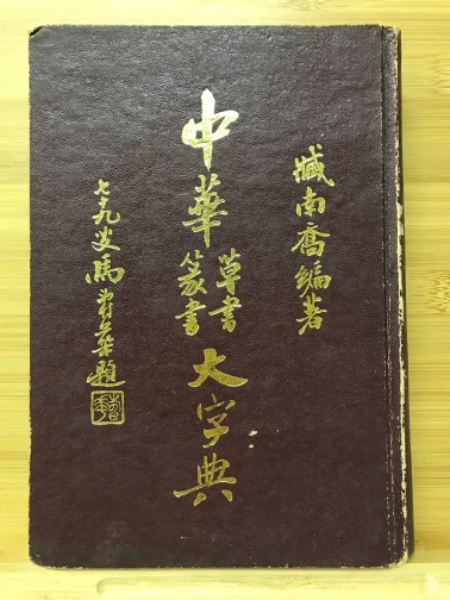 臧南喬編著
中華草書篆書大字典
七十九叟馬壽華題